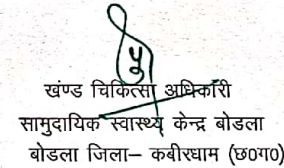 खण्ड चिकित्सा अधिकारी
सामुदायिक स्वास्थ्य केन्द्र बोडला
बोडला जिला– कबीरधाम (छ0ग0)